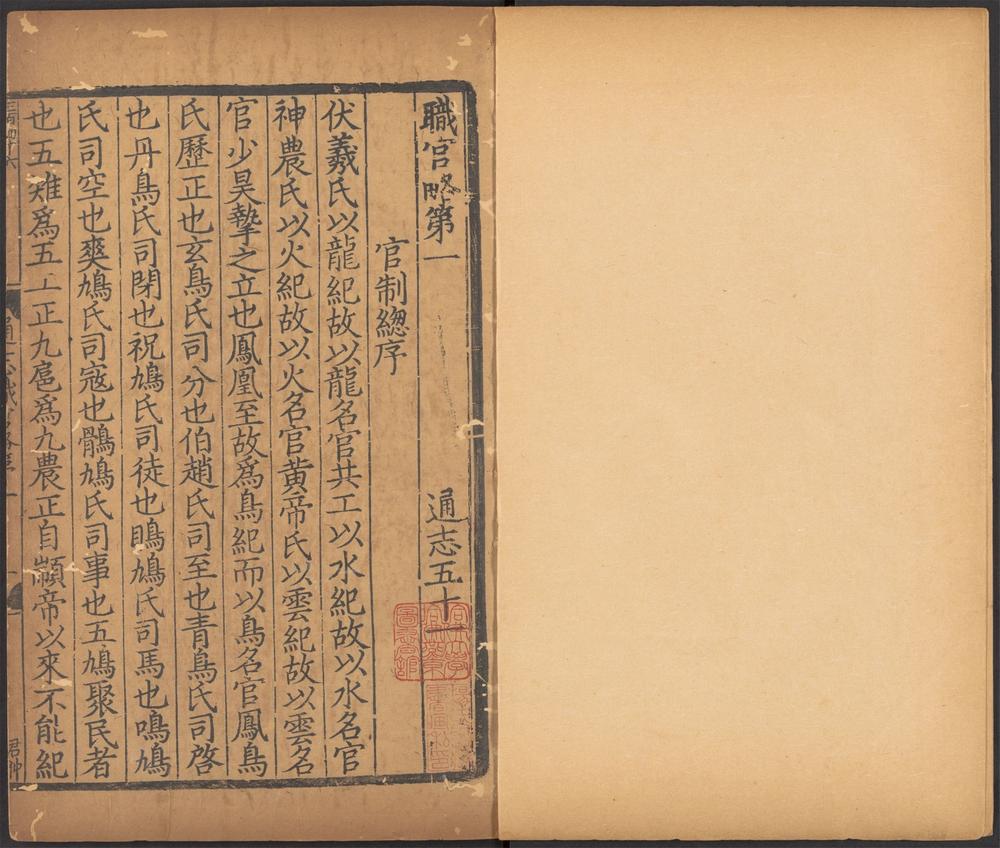 職官略第一 通志五十一
官制緫序
伏羲氏以龍紀故以龍名官共工以水紀故以水名官
神農氏以火紀故以火名官黄帝氏以雲紀故以雲名
官少昊摯之立也鳳凰至故爲鳥紀而以鳥名官鳳鳥
氏歷正也玄鳥氏司分也伯趙氏司至也青鳥氏司啓
也丹鳥氏司閉也祝鳩氏司徒也鴡鳩氏司馬也鳲鳩
氏司空也爽鳩氏司寇也鶻鳩氏司事也五鳩聚民者
也五雉爲五工正九扈爲九農正自顓帝以來不能紀
君仲